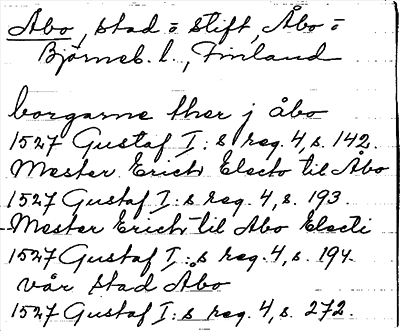 Åbo, stad o stift, Åbo o
Björneb. l., Finland
borgarne ther j åbo
1527 Gustaf I:s reg. 4, s. 142.
Mester Erich Electo til Åbo
1527 Gustaf I:s reg. 4, s. 193.
Mester Erich til Abo Electi
1527 Gustaf I:s reg. 4, s. 194.
vår stad Åbo
1527 Gustaf I:s reg. 4, s. 272.